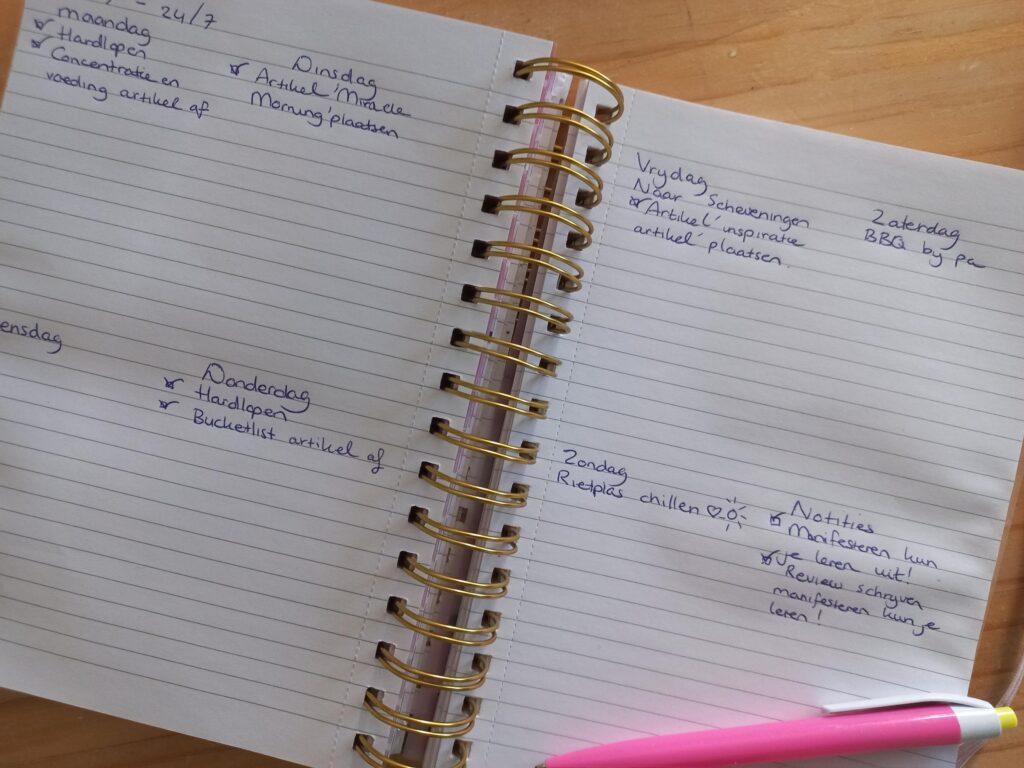 - 24/7
maandag
Hardlopen
Concentratie en
voeding artikel af
Dinsdag
Artikel 'Miracle
Morning' plaatsen
ensdag
Donderdag
Hardlopen
Bucketlist artikel af
Vrydag
Naar Scheveningen
Artikel 'inspiratie
artikel' plaatsen.
Zaterdag
BBQ by pa
Zondag
Rietplas chillen
Notities
Manifesteren kun
je leren uit!
Review schryven
manifesteren kun je
leren!